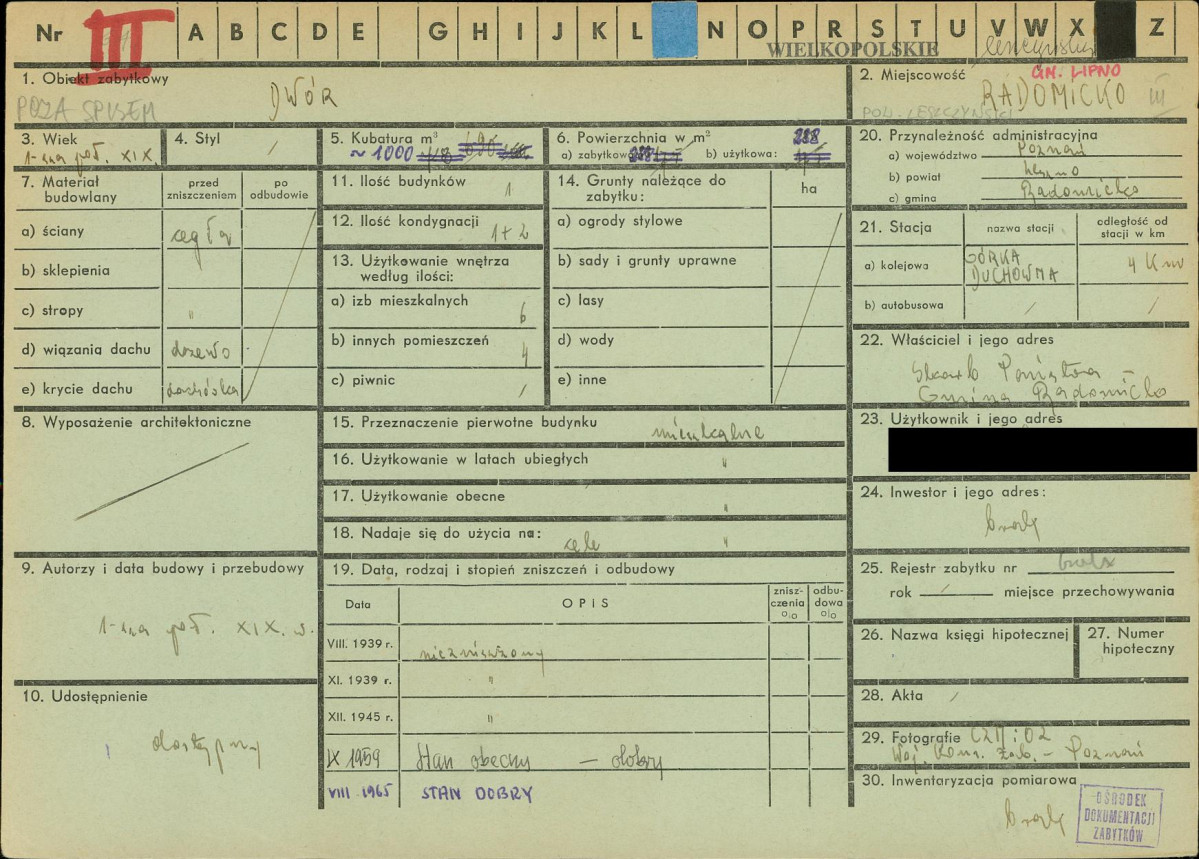 Nr III A B C D E G H I J K L N O P R S T U V W X Z
WIELKOPOLSKIE leszczyńskie
1. Obiekt zabytkowy
POZA SPISEM
DWÓR
2. Miejscowość GM. LIPNO
RADOMICKO III
POW. LESZCZYŃSKI
3. Wiek
1-sza poł. XIX.
4. Styl
/
5. Kubatura m³
~ 1000
6. Powierzchnia w m²
a) zabytkowa b) użytkowa:
288
20. Przynależność administracyjna
a) województwo Poznań
b) powiat Leszno
c) gmina Radomicko
7. Materiał budowlany
przed zniszczeniem
po odbudowie
a) ściany cegła
b) sklepienia
c) stropy "
d) wiązania dachu drzewo
e) krycie dachu dachówka
11. Ilość budynków 1
12. Ilość kondygnacji 1+2
13. Użytkowanie wnętrza
według ilości:
a) izb mieszkalnych 6
b) innych pomieszczeń 4
c) piwnic /
14. Grunty należące do
zabytku:
ha
a) ogrody stylowe
b) sady i grunty uprawne
c) lasy
d) wody
e) inne
21. Stacja
nazwa stacji
odległość od
stacji w km
a) kolejowa GÓRKA
DUCHOWNA 4 Km
b) autobusowa / /
22. Właściciel i jego adres
Skarb Państwa –
Gmina Radomicko
23. Użytkownik i jego adres
8. Wyposażenie architektoniczne
15. Przeznaczenie pierwotne budynku mieszkalne
16. Użytkowanie w latach ubiegłych "
17. Użytkowanie obecne "
18. Nadaje się do użycia na: cele "
24. Inwestor i jego adres:
brak
9. Autorzy i data budowy i przebudowy
1-sza poł. XIX. w.
19. Data, rodzaj i stopień zniszczeń i odbudowy
Data
OPIS
znisz-
czenia
%
odbu-
dowa
%
VIII. 1939 r. niezniszczony
XI. 1939 r. "
XII. 1945 r. "
IX 1959 Stan obecny – dobry
VIII 1965 STAN DOBRY
25. Rejestr zabytku nr brak
rok / miejsce przechowywania
26. Nazwa księgi hipotecznej
27. Numer
hipoteczny
10. Udostępnienie
dostępny
28. Akta /
29. Fotografie
Woj. Kons. Zab. – Poznań
30. Inwentaryzacja pomiarowa
brak
OŚRODEK
DOKUMENTACJI
ZABYTKÓW